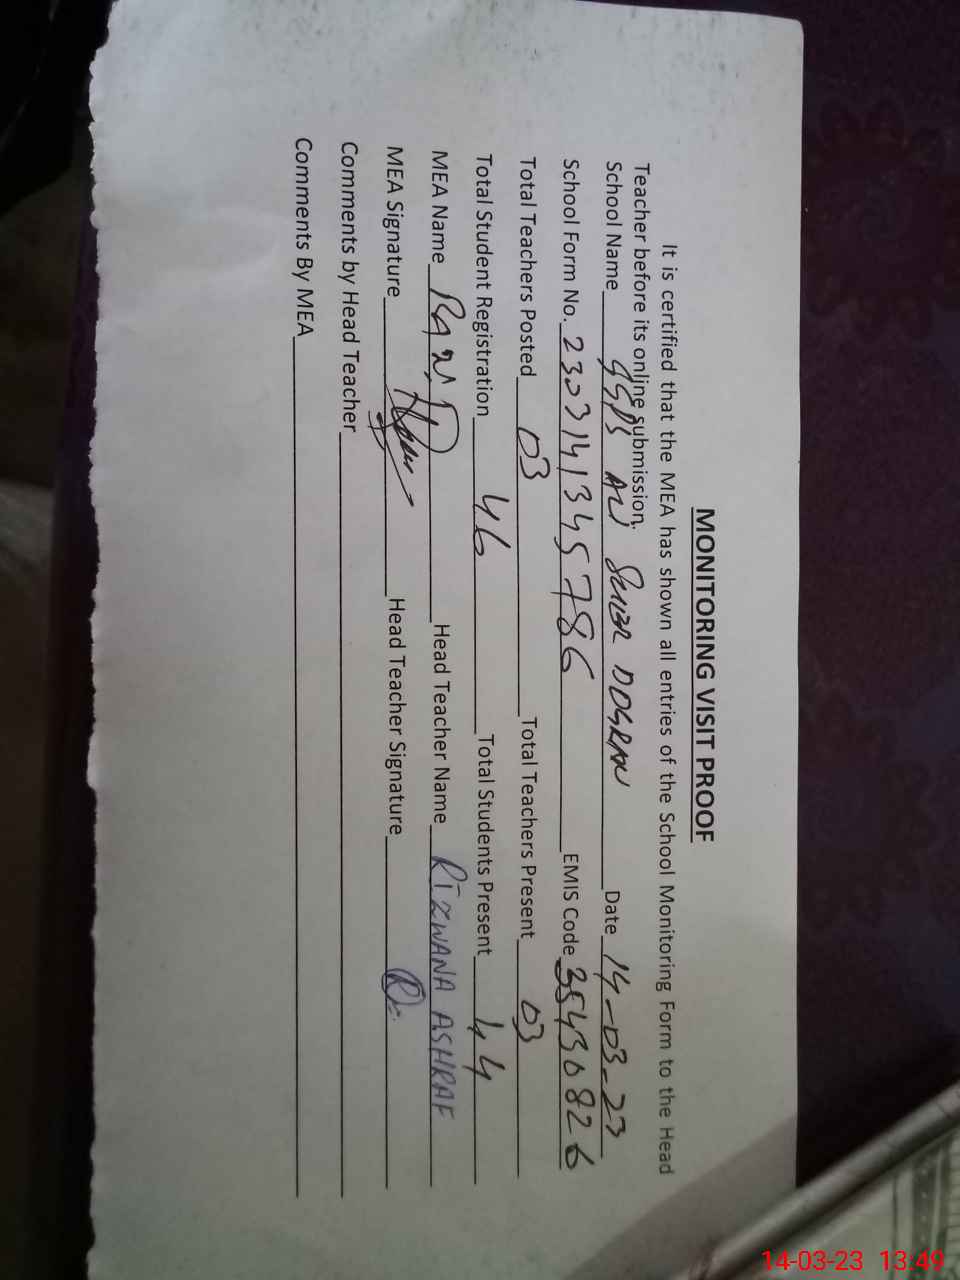 MONITORING VISIT PROOF
It is certified that the MEA has shown all entries of the School Monitoring Form to the Head
Teacher before its online submission.
School Name GGPS DOGRAN Date 14-03-23
School Form No. 230314134 5786 EMIS Code 35430826
Total Teachers Posted 03 Total Teachers Present 03
Total Student Registration 46 Total Students Present 44
MEA Name Head Teacher Name RIZWANA ASHRAF
MEA Signature Head Teacher Signature
Comments by Head Teacher
Comments By MEA
14-03-23 13:49